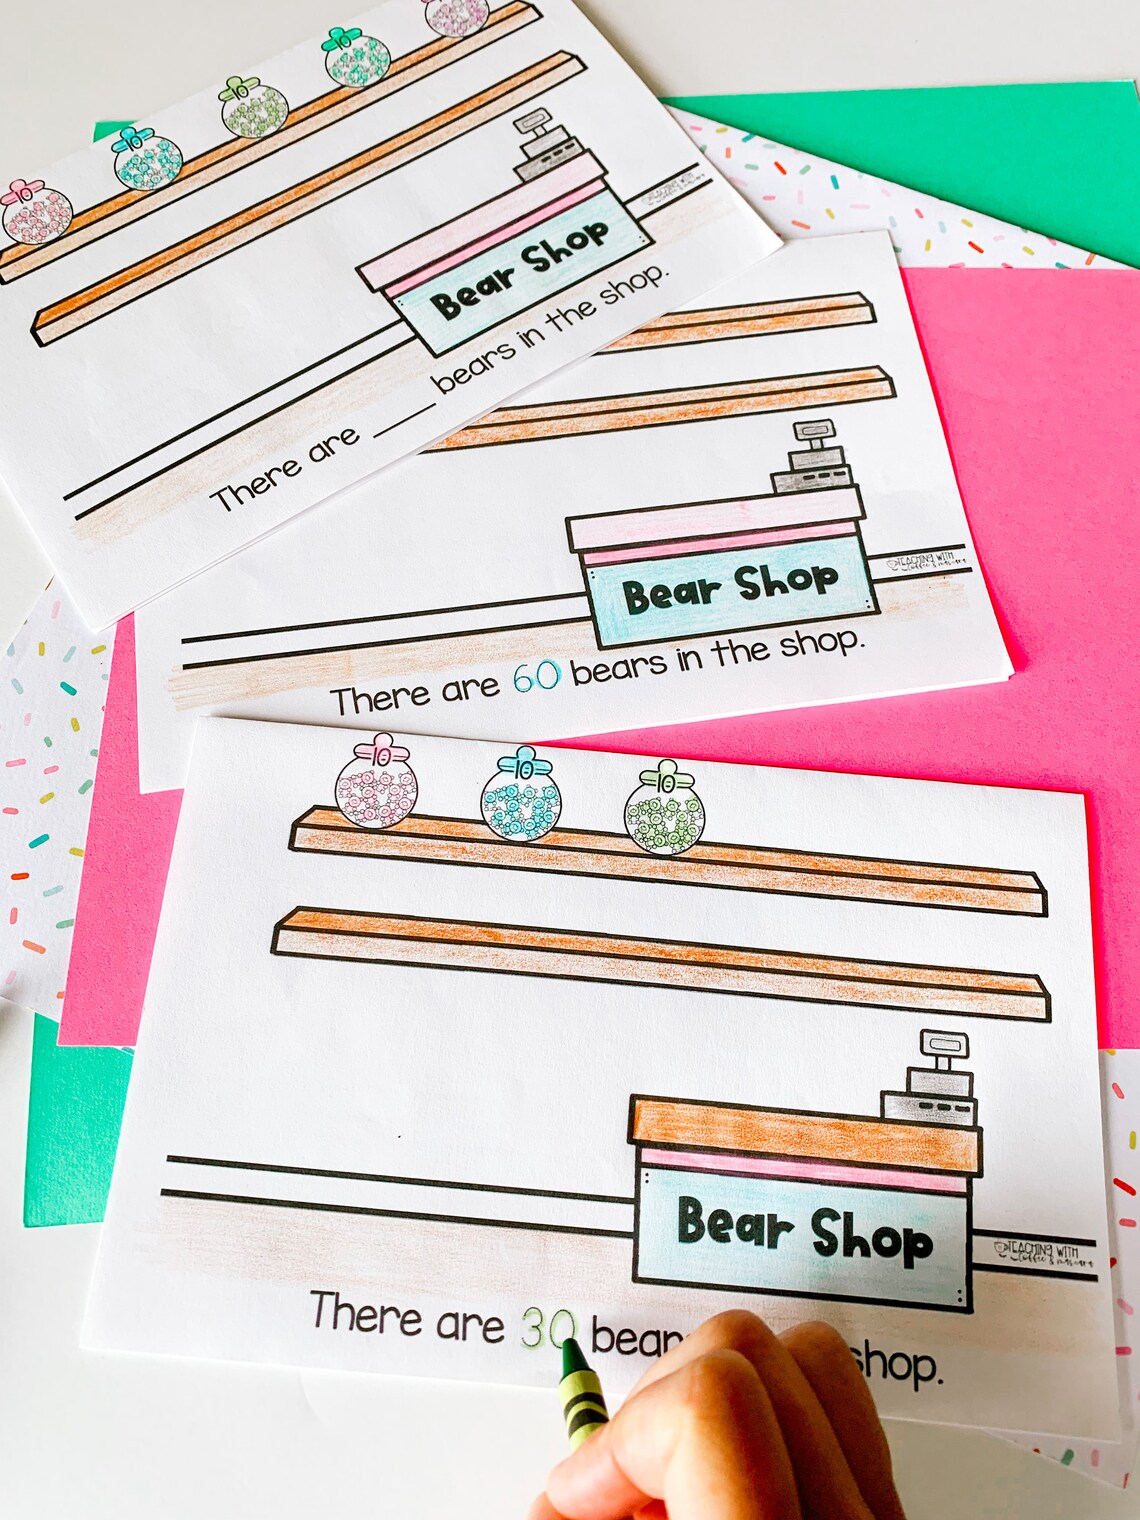 10
10
10
10
10
Bear Shop
TEACHING WITH
There are ____ bears in the shop.
Bear Shop
TEACHING WITH
There are 60 bears in the shop.
10
10
10
Bear Shop
TEACHING WITH
There are 30 bear shop.